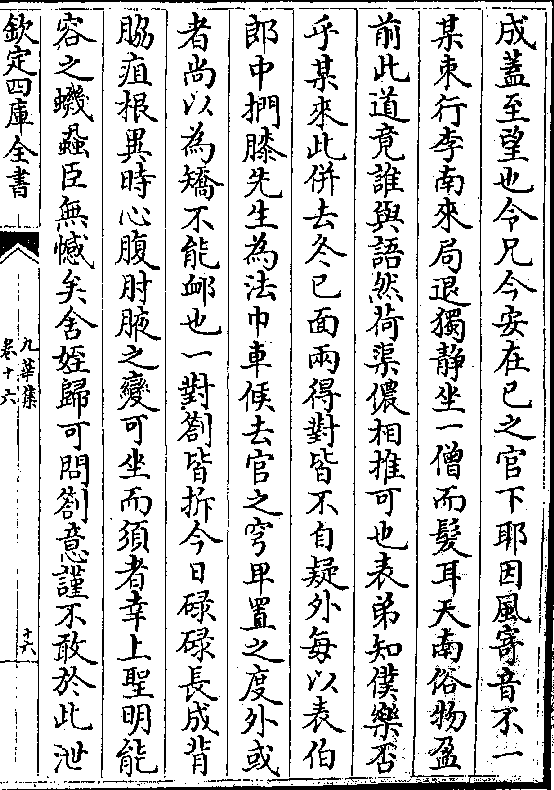 成蓋至望也令兄今安在已之官下耶因風寄音不一
某東行李南來局退獨静坐一僧而髮耳天南俗物盈
前此道竟誰與語然荷渠儂相推可也表弟知僕樂否
乎某來此併去冬已面兩得對皆不自疑外每以表伯
郎中捫膝先生為法巾車候去官之穹卑置之度外或
者尚以為矯不能卹也一對劄皆拆今日碌碌長成背
脇疽根異時心腹肘腋之變可坐而須者幸上聖明能
容之蟣蝨臣無憾矣舍姪歸可問劄意謹不敢於此泄
欽定四庫全書
九華集
卷十六
十六